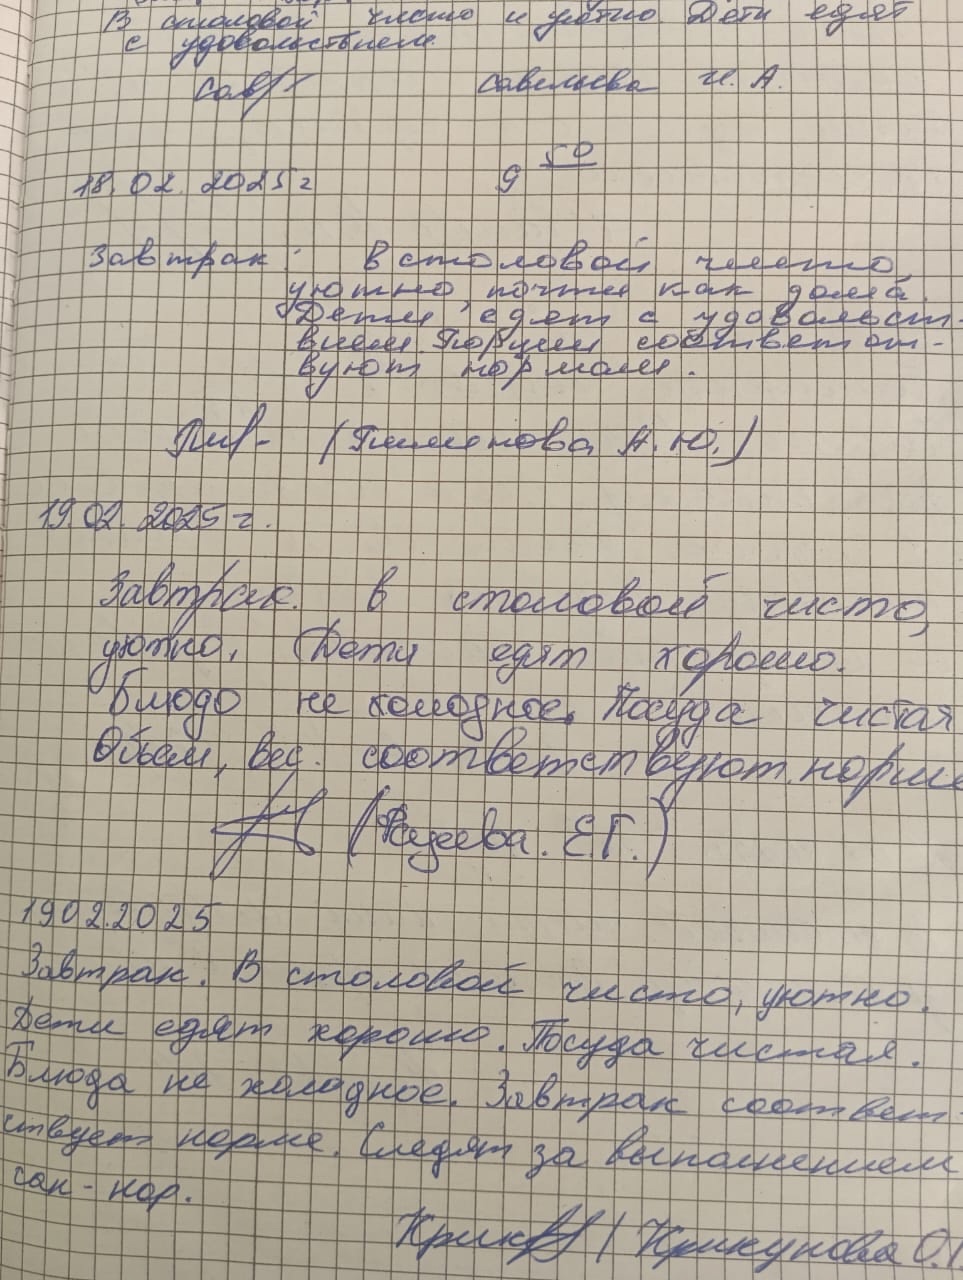 В столовой чисто и уютно. Дети едят
с удовольствием.
Савельева И. А.
18.02.2025г 9 50
Завтрак: В столовой чисто,
уютно, почти как дома.
Дети едят с удовольст-
вием. Порции соответст-
вуют нормам.
(Пименова А.Ю.)
19.02.2025г.
Завтрак. в столовой чисто,
уютно. Дети едят хорошо.
Блюдо не холодное. Посуда чистая
Объем, вес. соответствуют норме
Е.Г.)
19.02.2025
Завтрак. В столовой чисто, уютно.
Дети едят хорошо. Посуда чистая.
Блюда не холодное. Завтрак соответ-
ствует норме. Следят за выполнением
сан-нор.
/ Крикунова О.